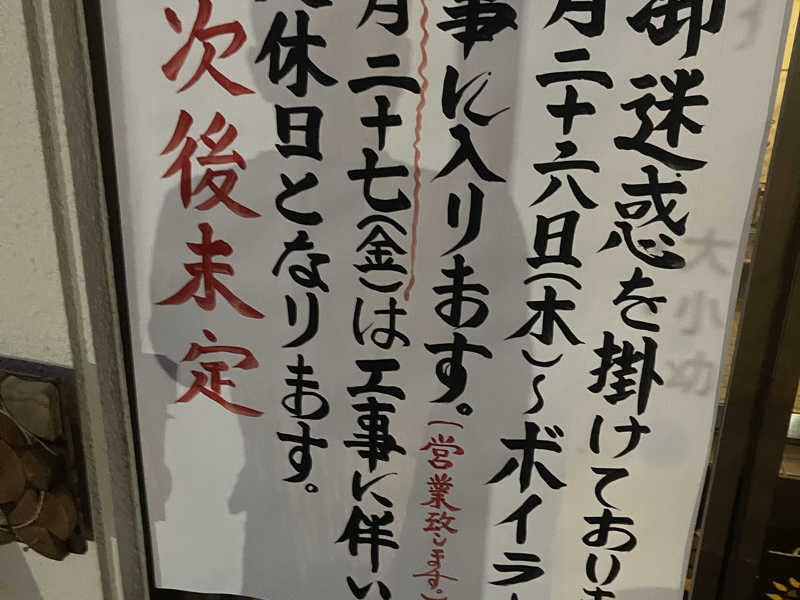 御迷惑を掛けており
月二十六日(木)～ボイラ
事に入ります。(営業致します。)
月二十七(金)は工事に伴い
休日となります。
次後未定
大小幼